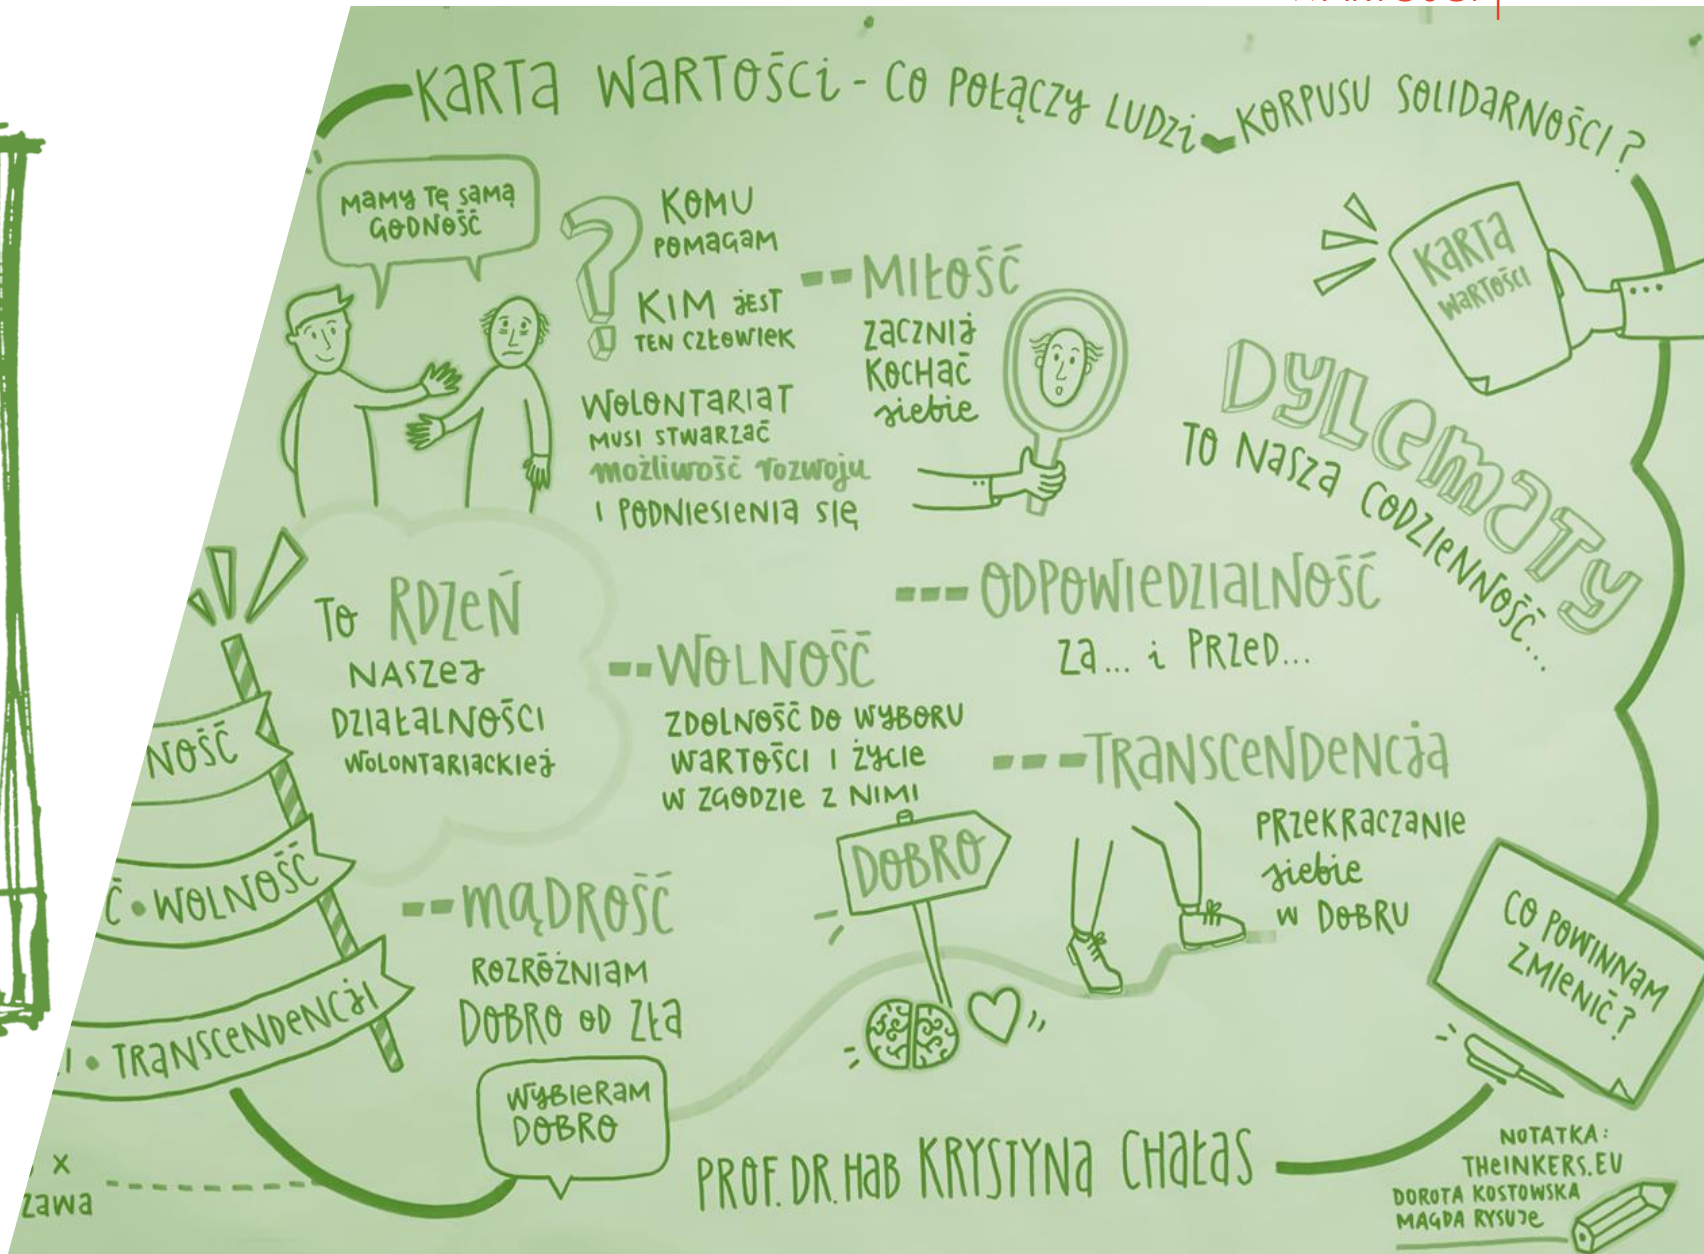 KARTA WARTOŚCI - CO POŁĄCZY LUDZI KORPUSU SOLIDARNOŚCI?
MAMY TĘ SAMĄ
GODNOŚĆ
KOMU
POMAGAM
KIM JEST
TEN CZŁOWIEK
WOLONTARIAT
MUSI STWARZAĆ
możliwość rozwoju
I PODNIESIENIA SIĘ
MIŁOŚĆ
ZACZNIJ
KOCHAĆ
siebie
KARTA
WARTOŚCI
DYLEMATY
TO NASZA CODZIENNOŚĆ....
TO RDZEŃ
NASZEJ
DZIAŁALNOŚCI
WOLONTARIACKIEJ
ODPOWIEDZIALNOŚĆ
ZA... i PRZED...
WOLNOŚĆ
ZDOLNOŚĆ DO WYBORU
WARTOŚCI I ŻYCIE
W ZGODZIE Z NIMI
TRANSCENDENCJA
PRZEKRACZANIE
siebie
W DOBRU
NOŚĆ
Ć • WOLNOŚĆ
I • TRANSCENDENCJI
MĄDROŚĆ
ROZRÓŻNIAM
DOBRO OD ZŁA
WYBIERAM
DOBRO
DOBRO
CO POWINNAM
ZMIENIĆ?
PROF. DR. HAB KRYSTYNA CHAŁAS
X
ZAWA
NOTATKA:
THEINKERS.EU
DOROTA KOSTOWSKA
MAGDA RYSUJE